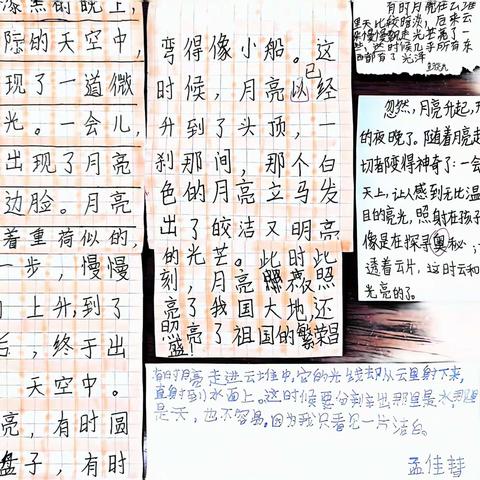 漆黑的晚上,
际的天空中,
现了一道微
光。一会儿,
出现了月亮
边脸。月亮
着重荷似的,
一步,慢慢
上升,到了
后,终于出
天空中。
亮,有时圆
盘子,有时
弯得像小船。这
时候,月亮已经
升到了头顶,一
刹那间,那个白
色的月亮立马发
出了皎洁又明亮
的光芒。此时此
刻,月亮照
亮了我国大地,还
照亮了祖国的繁荣昌
盛!
有时月
天比较暗淡,后来云
光芒
这时候几乎所有东
西都有了光泽
忽然,月亮升起,
的夜晚了。随着月亮
切都变得神奇了:一会
天上,让人感到无比温
目的亮光,照射在孩子
像是在探寻奥秘;
透着云片,这时云和
光亮的了。
有时月亮走进云堆中,它的光线却从云里射下来,
直射到水面上。这时候要分别出那里是水那里
是天,也不容易,因为我只看见一片洁白。
孟佳彗